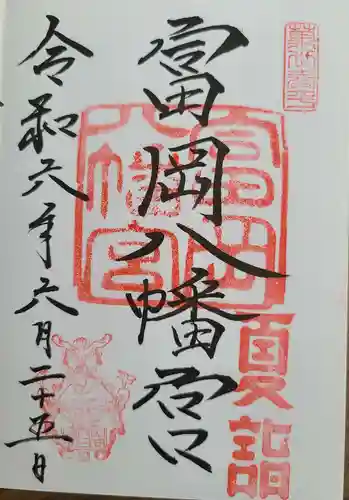 富岡八幡宮
夏詣
令和六年六月二十五日
富岡八幡宮